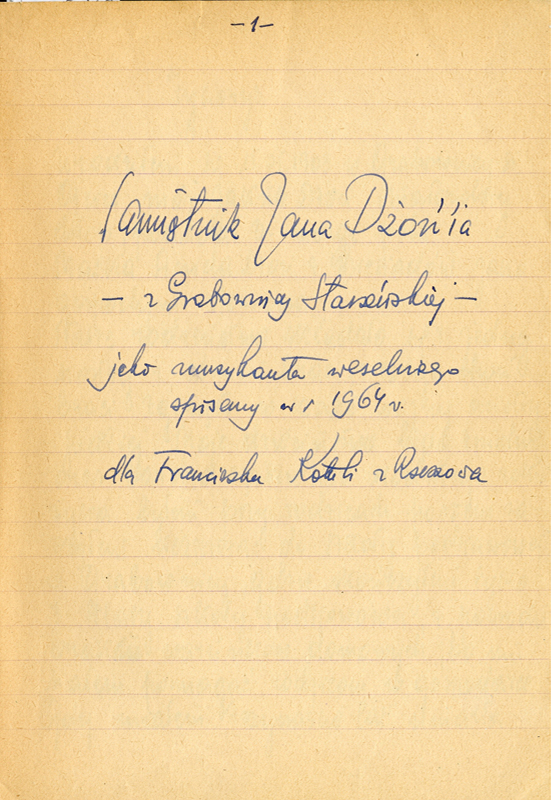 -1-
Pamiętnik Jana Dżoń'ia
- z Grabownicy Starzeńskiej -
jako muzykanta weselnego
spisany w r 1964 r.
dla Franciszka Kotuli z Rzeszowa